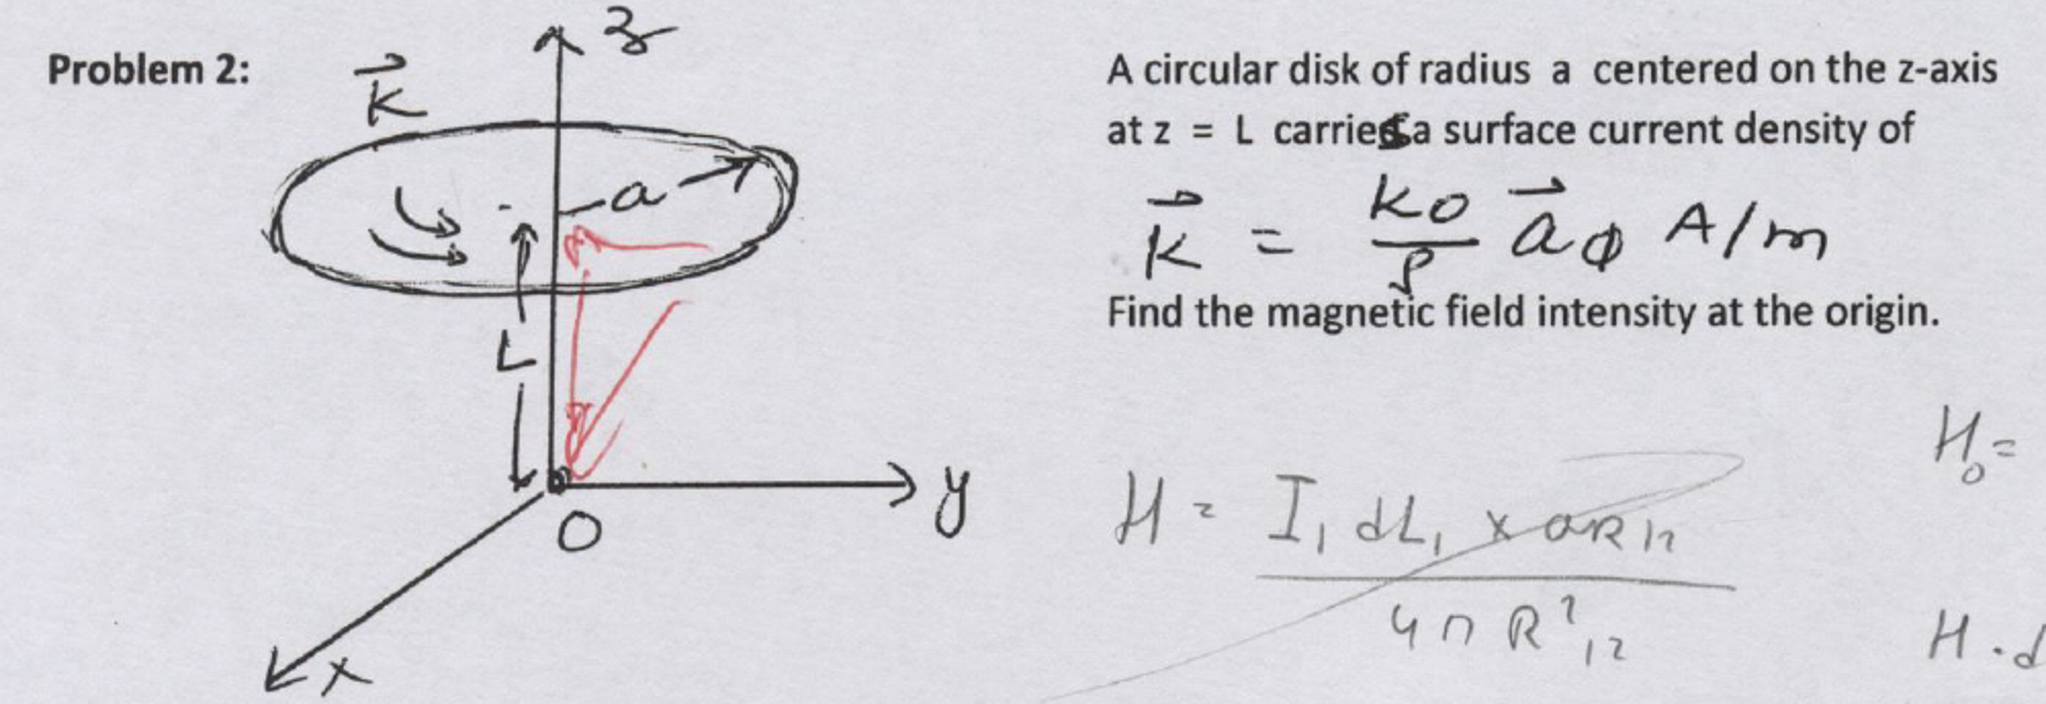 Problem 2:
z
K⃗
a
L
O
y
x
A circular disk of radius a centered on the z-axis
at z = L carries a surface current density of
K⃗ = K0/ρ a⃗ϕ A/m
Find the magnetic field intensity at the origin.
H0 =
H = I1 dL1 × aR12 / 4π R²12
H . d